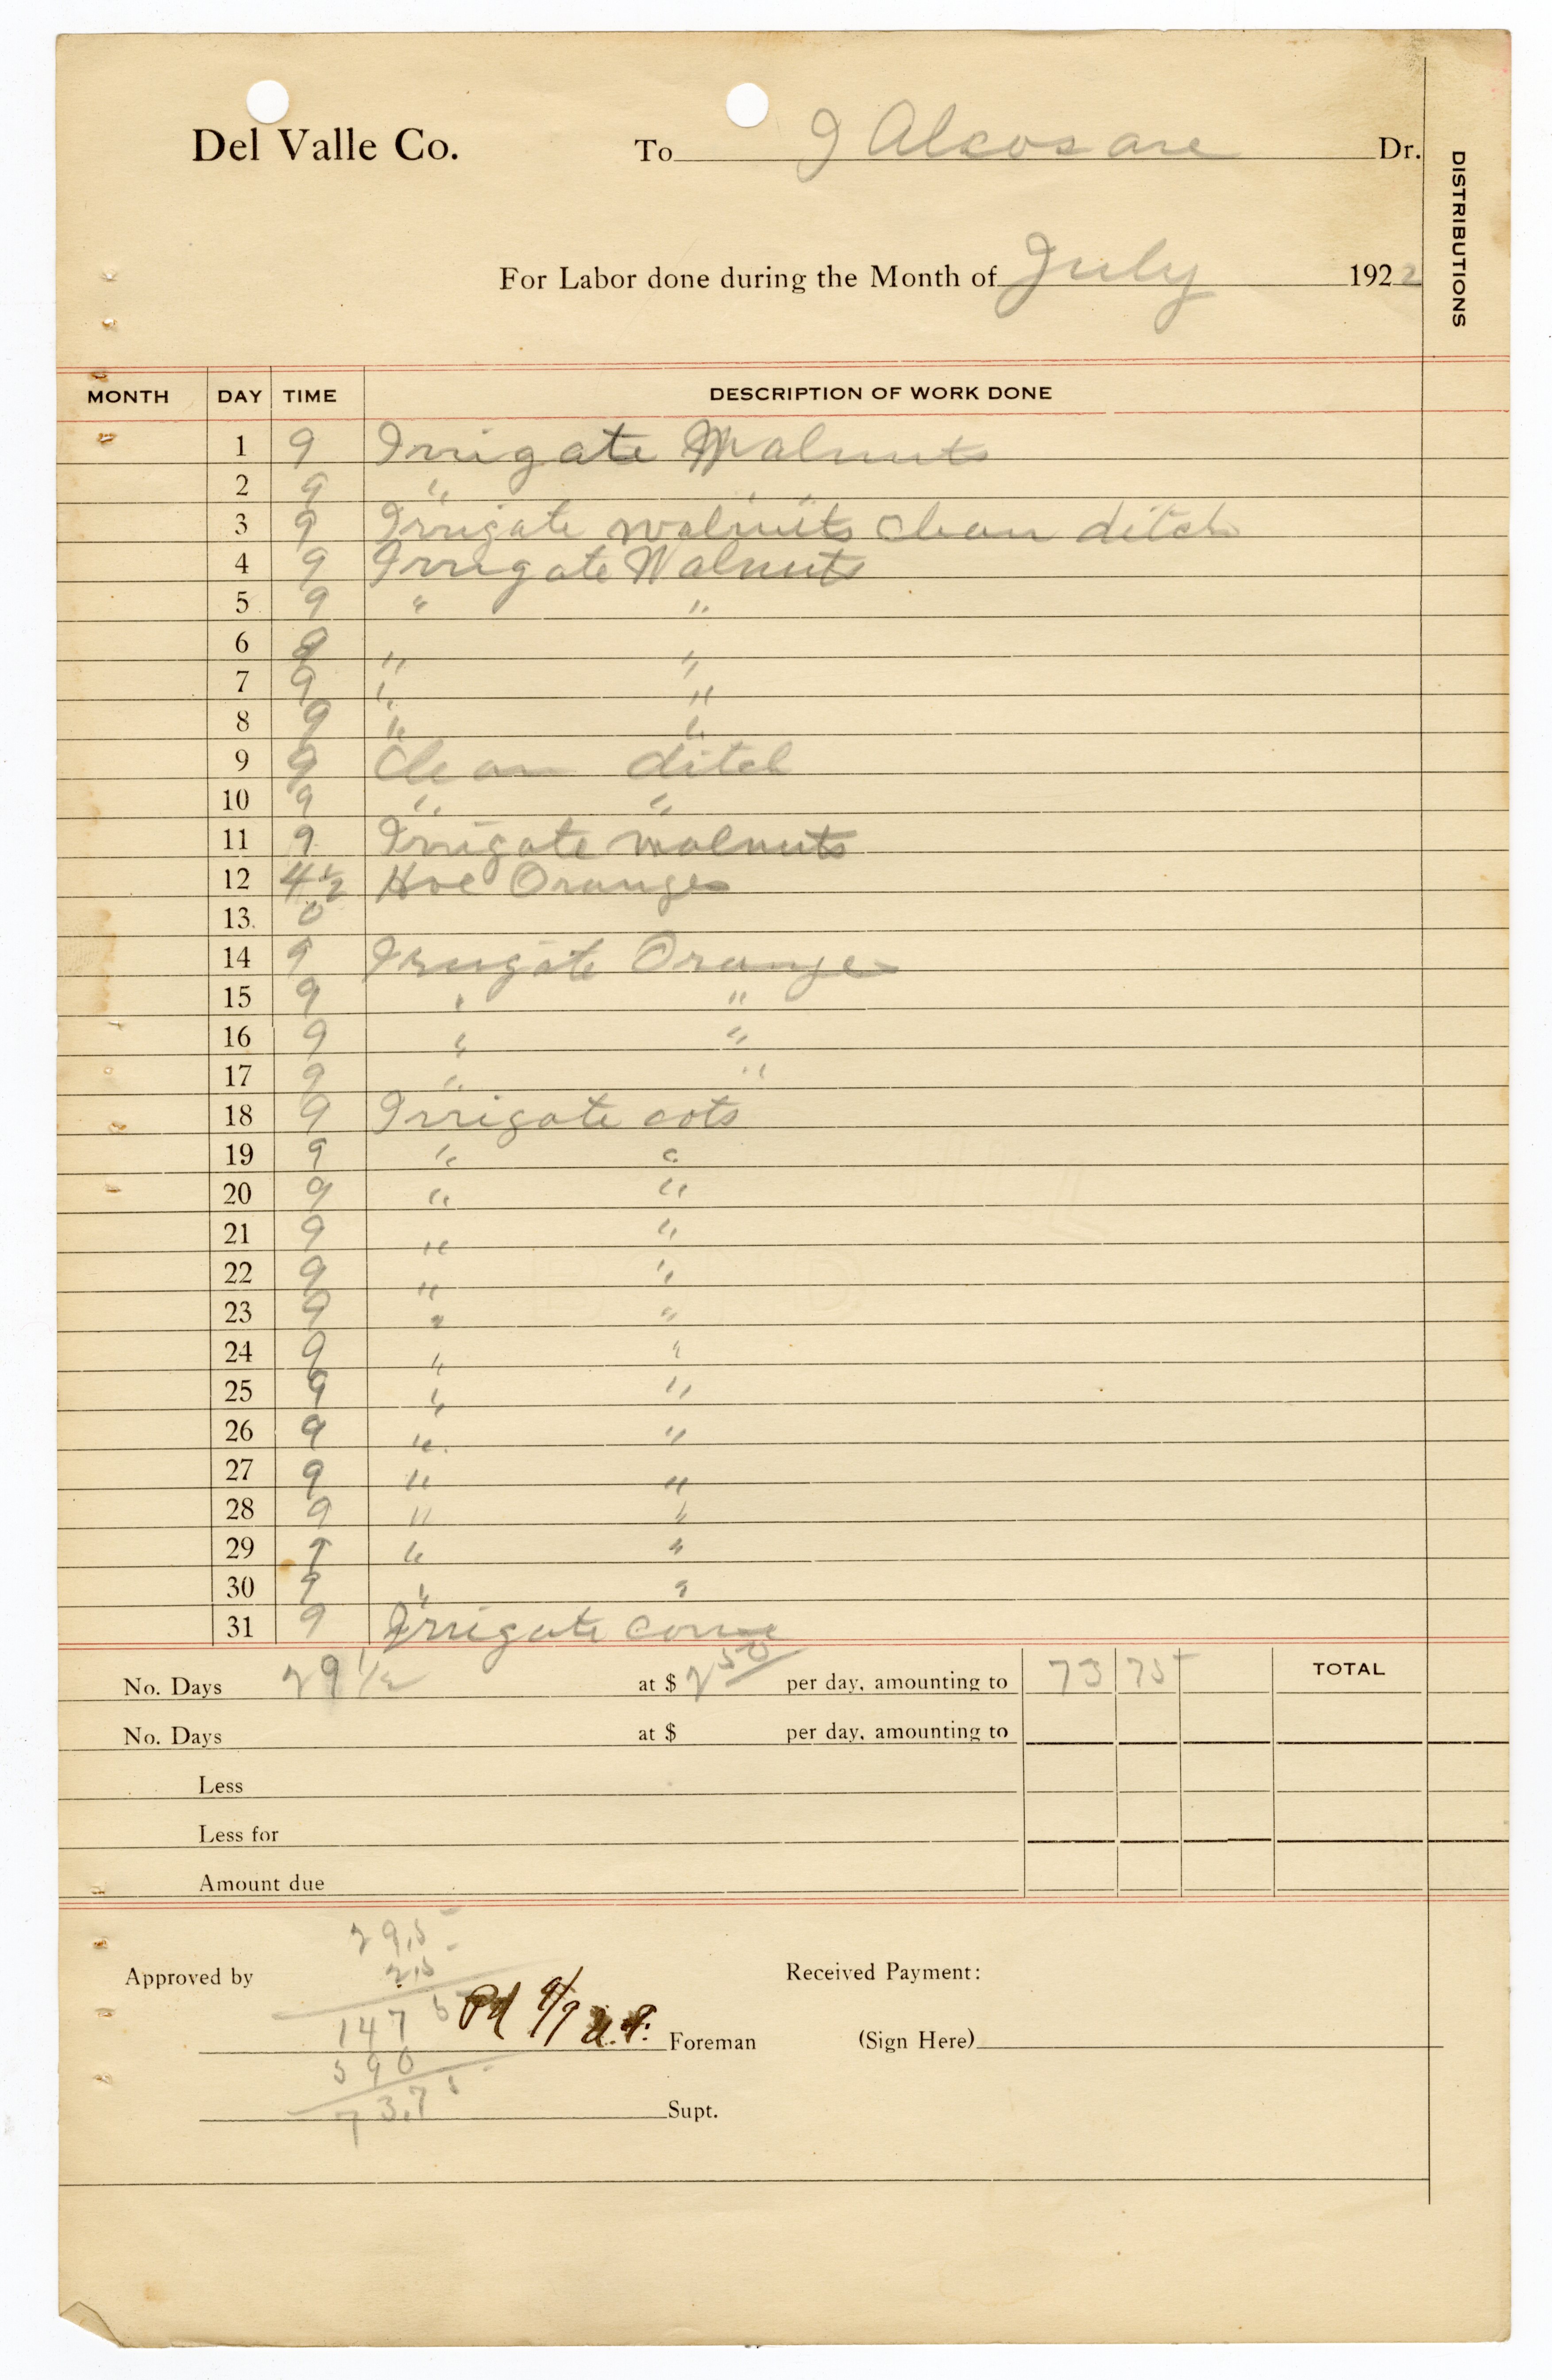 Del Valle Co. To J Alcosare Dr.
DISTRIBUTIONS
For Labor done during the Month of July 1922
MONTH DAY TIME DESCRIPTION OF WORK DONE
1 9 Irrigate Walnuts
2 9 " " "
3 9 Irrigate walnuts clean ditch
4 9 Irrigate Walnuts
5 9 " "
6 9 " "
7 9 " "
8 9 " "
9 9 Clean ditch
10 9 " "
11 9 Irrigate walnuts
12 4 1/2 Hoe Oranges
13. 0
14 9 Irrigate Orange
15 9 " "
16 9 " "
17 9 " "
18 9 Irrigate cots
19 9 " "
20 9 " "
21 9 " "
22 9 " "
23 9 " "
24 9 " "
25 9 " "
26 9 " "
27 9 " "
28 9 " "
29 9 " "
30 9 " "
31 9 Irrigate corn
No. Days 29 1/2 at $ 2 50 per day, amounting to 73 75 TOTAL
No. Days at $ per day, amounting to
Less
Less for
Amount due
29.5
Approved by 2.5 Received Payment:
147 5 Pd 9/9 Foreman (Sign Here)
590
73.75 Supt.